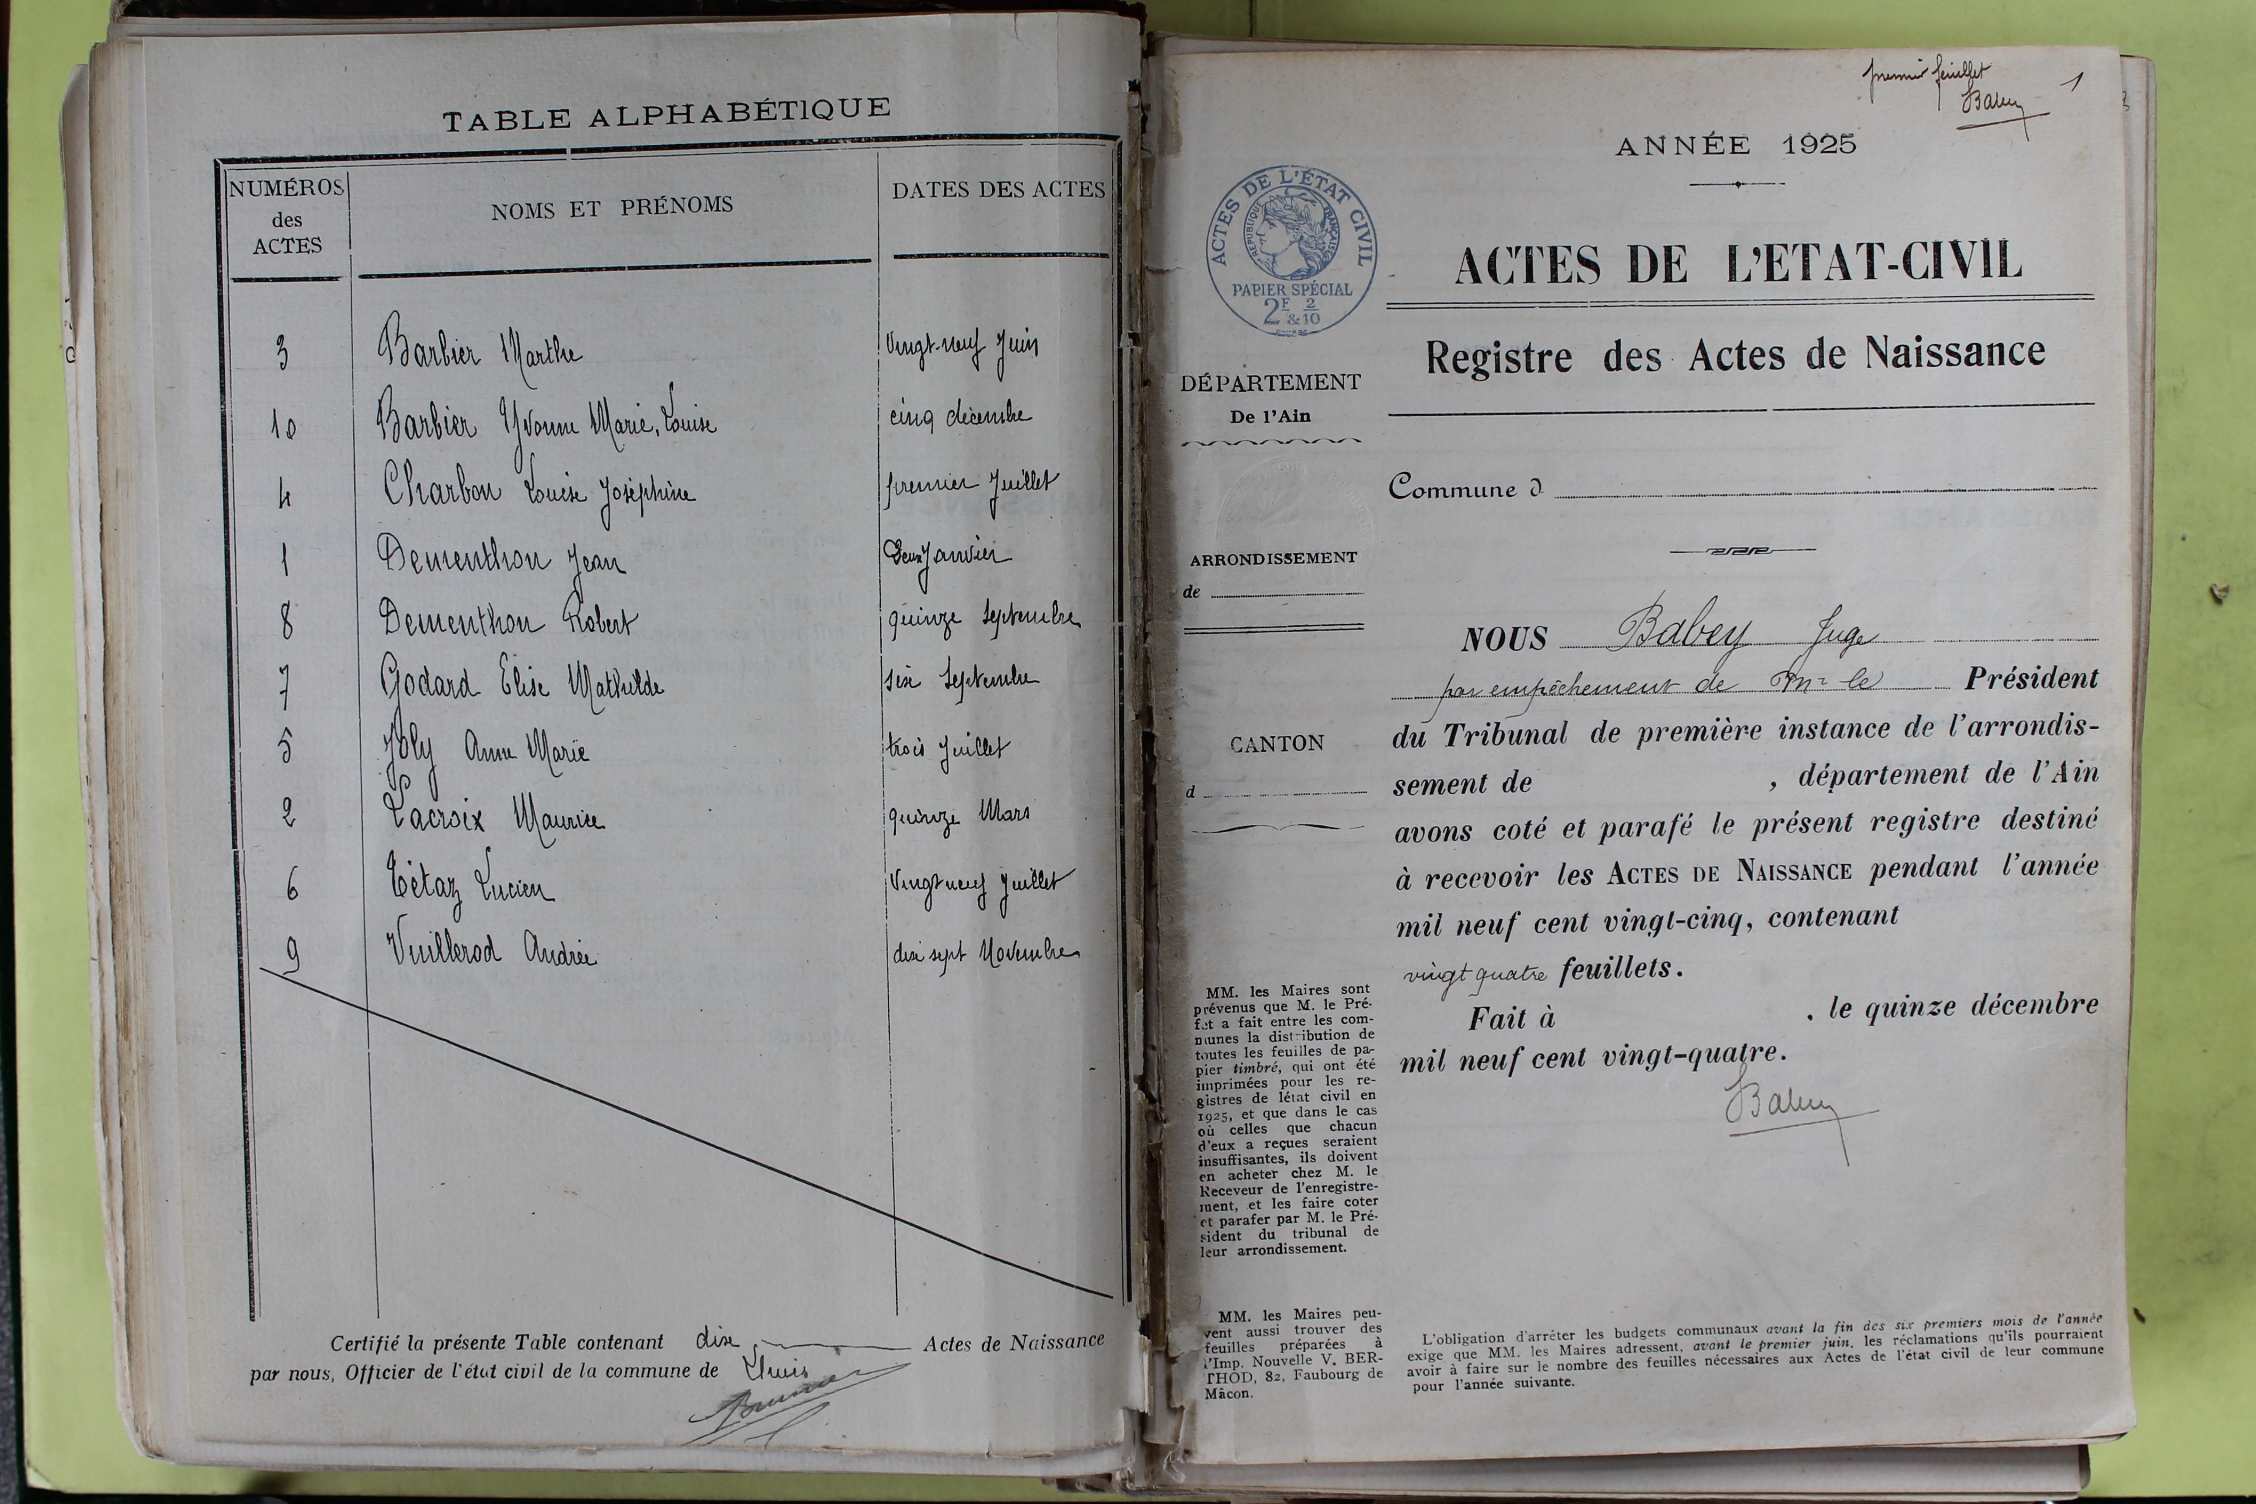 TABLE ALPHABÉTIQUE
NUMÉROS des ACTES
NOMS ET PRÉNOMS
DATES DES ACTES
3 Barbier Marthe Vingt-neuf Juin
10 Barbier Yvonne Marie, Louise cinq décembre
4 Charbon Louise Joséphine premier Juillet
1 Dementhon Jean Deux Janvier
8 Dementhon Robert quinze Septembre
7 Godard Elise Mathilde six Septembre
5 Joly Anne Marie trois Juillet
2 Lacroix Maurice quinze Mars
6 Tétaz Lucien Vingt neuf Juillet
9 Vuillerod Andrée dix sept Novembre
Certifié la présente Table contenant dix Actes de Naissance
par nous, Officier de l'état civil de la commune de Lhuis
premier feuillet 1
Babey
ANNÉE 1925
ACTES DE L'ÉTAT CIVIL
RÉPUBLIQUE FRANÇAISE
PAPIER SPÉCIAL
2F & 2/10
ACTES DE L'ETAT-CIVIL
Registre des Actes de Naissance
DÉPARTEMENT
De l'Ain
Commune d
ARRONDISSEMENT
de
CANTON
d
NOUS Babey Juge
par empêchement de Mr le Président
du Tribunal de première instance de l'arrondis-
sement de , département de l'Ain
avons coté et parafé le présent registre destiné
à recevoir les ACTES DE NAISSANCE pendant l'année
mil neuf cent vingt-cinq, contenant
vingt quatre feuillets.
Fait à , le quinze décembre
mil neuf cent vingt-quatre.
Babey
MM. les Maires sont
prévenus que M. le Pré-
fet a fait entre les com-
munes la distribution de
toutes les feuilles de pa-
pier timbré, qui ont été
imprimées pour les re-
gistres de létat civil en
1925, et que dans le cas
où celles que chacun
d'eux a reçues seraient
insuffisantes, ils doivent
en acheter chez M. le
Receveur de l'enregistre-
ment, et les faire coter
et parafer par M. le Pré-
sident du tribunal de
leur arrondissement.
MM. les Maires peu-
vent aussi trouver des
feuilles préparées à
l'Imp. Nouvelle V. BER-
THOD, 82, Faubourg de
Mâcon.
L'obligation d'arrêter les budgets communaux avant la fin des six premiers mois de l'année
exige que MM. les Maires adressent, avant le premier juin, les réclamations qu'ils pourraient
avoir à faire sur le nombre des feuilles nécessaires aux Actes de l'état civil de leur commune
pour l'année suivante.